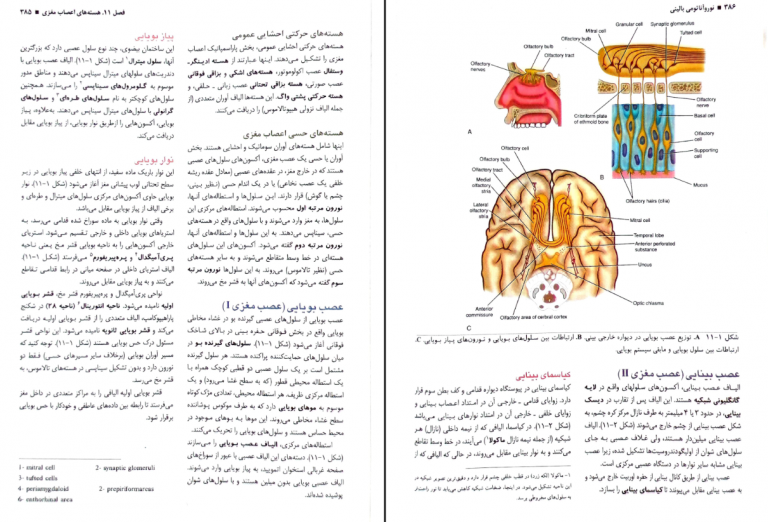 ۳۸۵ ■ فصل ۱۱. هسته‌های اعصاب مغزی
هسته‌های حرکتی احشایی عمومی
هسته‌های حرکتی احشایی عمومی، بخش پاراسمپاتیک اعصاب
مغزی را تشکیل می‌دهند. اینها عبارتند از هسته ادینگر ـ
وستفال عصب اکولوموتور، هسته‌های اشکی و بزاقی فوقانی
عصب صورتی، هسته بزاقی تحتانی عصب زبانی ـ حلقی، و
هسته حرکتی پشتی واگ. این هسته‌ها الیاف آوران متعددی (از
جمله الیاف نزولی هیپوتالاموس) را دریافت می‌کنند.
هسته‌های حسی اعصاب مغزی
اینها شامل هسته‌های آوران سوماتیک و احشایی هستند. بخش
آوران یا حسی یک عصب مغزی، آکسون‌های سلول‌های عصبی
هستند که در خارج مغز، در عقده‌های عصبی (معادل عقده ریشه
خلفی یک عصب نخاعی) یا در یک اندام حسی (نظیر بینی،
چشم یا گوش) قرار دارند. این سلول‌ها و استطاله‌های آنها،
نورون مرتبه اول محسوب می‌شوند. استطاله‌های مرکزی این
سلول‌ها، به مغز وارد می‌شوند و با سلول‌های واقع در هسته‌های
حسی، سیناپس می‌دهند. به این سلول‌ها و استطاله‌های آنها،
نورون مرتبه دوم گفته می‌شود. آکسون‌های این سلول‌های
هسته‌ای در خط وسط متقاطع می‌شوند و به سایر هسته‌های
حسی (نظیر تالاموس) می‌روند. به این سلول‌ها نورون مرتبه
سوم گفته می‌شود که آکسون‌های آنها به قشر مخ می‌روند.
عصب بویایی (عصب مغزی I)
عصب بویایی از سلول‌های عصبی گیرنده بو در غشاء مخاطی
بویایی واقع در بخش فوقانی حفره بینی در بالای شاخک
فوقانی آغاز می‌شود (شکل ۱-۱۱). سلول‌های گیرنده بو در
میان سلول‌های حمایت‌کننده پراکنده هستند. هر سلول گیرنده
مشتمل است بر یک سلول عصبی دو قطبی کوچک همراه با
یک استطاله محیطی قطور (که به سطح غشا می‌رود) و یک
استطاله مرکزی ظریف. هر استطاله محیطی، تعدادی مژک کوتاه
موسوم به موهای بویایی دارد که به طرف موکوس پوشاننده
سطح غشاء مخاطی می‌روند. این موها به بوهای موجود در
محیط حساس هستند و سلول‌های بویایی را تحریک می‌کنند.
استطاله‌های مرکزی، الیاف عصب بویایی را می‌سازند
(شکل ۱-۱۱). دسته‌های این الیاف عصبی با عبور از سوراخ‌های
صفحه غربالی استخوان اتموئید، به پیاز بویایی وارد می‌شوند.
الیاف عصبی بویایی بدون میلین هستند و با سلول‌های شوان
پوشیده شده‌اند.
پیاز بویایی
این ساختمان بیضوی، چند نوع سلول عصبی دارد که بزرگترین
آنها، سلول میترال۱ است (شکل ۱-۱۱). الیاف عصب بویایی با
دندریت‌های سلولهای میترال سیناپس می‌دهند و مناطق مدور
موسوم به گلومرول‌های سیناپسی۲ را می‌سازند. همچنین
سلول‌های کوچکتر به نام سلول‌های طره‌ای۳ و سلول‌های
گرانولی با سلول‌های میترال سیناپس می‌دهند. به‌علاوه، پیاز
بویایی، آکسون‌هایی را ازطریق نوار بویایی، از پیاز بویایی مقابل
دریافت می‌کند.
نوار بویایی
این نوار باریک ماده سفید، از انتهای خلفی پیاز بویایی در زیر
سطح تحتانی لوب پیشانی مغز آغاز می‌شود (شکل ۱-۱۱). نوار
بویایی حاوی آکسون‌های مرکزی سلول‌های میترال و طره‌ای و
برخی الیاف از پیاز بویایی مقابل می‌باشد.
وقتی نوار بویایی به ماده سوراخ شده قدامی می‌رسد، به
استریاهای بویایی داخلی و خارجی تقسیم می‌شود. استریای
خارجی آکسون‌هایی را به ناحیه بویایی قشر مخ یعنی ناحیه
پری‌آمیگدال۴ و پره‌پیریفورم۵ می‌فرستد (شکل ۱-۱۱).
الیاف استریای داخلی در صفحه میانی در رابط قدامی تقاطع
می‌کنند و به پیاز بویایی مقابل می‌روند.
نواحی پری‌آمیگدال و پره‌پیریفورم قشر مخ، قشر بویایی
اولیه نامیده می‌شود. ناحیه انتورینال۶ (ناحیه ۲۸) در شکنج
پاراهیپوکامپ، الیاف متعددی را از قشر بویایی اولیه دریافت
می‌کند و قشر بویایی ثانویه نامیده می‌شود. این نواحی قشر
مسئول درک حس بویایی هستند (شکل ۱-۱۱). توجه کنید که
مسیر آوران بویایی (برخلاف سایر مسیرهای حسی) فقط دو
نورون دارد و بدون تشکیل سیناپس در هسته‌های تالاموس، به
قشر مخ می‌رسد.
قشر بویایی اولیه الیافی را به مراکز متعددی در داخل مغز
می‌فرستد تا رابطه بین داده‌های عاطفی و خودکار با حس بویایی
برقرار شود.
1- mitral cell
2- synaptic glomeruli
3- tufted cells
4- periamygdaloid
2- prepiriformareas
6- entorhinal area
۳۸۶ ■ نوروآناتومی بالینی
Olfactory bulb
Olfactory tract
Olfactory nerves
A
Granular cell
Synaptic glomerulus
Mitral cell
Tufted cell
Olfactory bulb
Cribriform plate of ethmoid bone
Olfactory nerve
Basal cell
Olfactory cell
Supporting cell
Mucus
B
Olfactory hairs (cilia)
Olfactory cell
Olfactory bulb
Olfactory tract
Medial olfactory stria
Lateral olfactory stria
Mitral cell
Temporal lobe
Anterior perforated substance
Uncus
Optic chiasma
Anterior commissure
Olfactory area of cerebral cortex
C
شکل ۱-۱۱ A. توزیع عصب بویایی در دیواره خارجی بینی. B. ارتباطات بین سلول‌های بویایی و نورون‌های پیاز بویایی. C.
ارتباطات بین سلول بویایی و مابقی سیستم بویایی.
عصب بینایی (عصب مغزی II)
الیاف عصب بینایی، آکسون‌های سلولهای واقع در لایه
گانگلیونی شبکیه هستند. این الیاف پس از تقارب در دیسک
بینایی، در حدود ۳ یا ۴ میلیمتر به طرف نازال مرکز کره چشم، به
شکل عصب بینایی از چشم خارج می‌شوند (شکل ۲-۱۱). الیاف
عصب بینایی میلین‌دار هستند، ولی غلاف عصب به جای
سلول‌های شوان از اولیگودندروسیت‌ها تشکیل شده، زیرا عصب
بینایی مشابه سایر نوارها در دستگاه عصبی مرکزی است.
عصب بینایی از طریق کانال بینایی از حفره اوربیت خارج می‌شود و
به عصب بینایی مقابل می‌پیوندد تا کیاسمای بینایی را بسازد.
کیاسمای بینایی
کیاسمای بینایی در پیوستگاه دیواره قدامی و کف بطن سوم قرار
دارد. زوایای قدامی ـ خارجی آن در امتداد اعصاب بینایی و
زوایای خلفی ـ خارجی آن در امتداد نوارهای بینایی می‌باشد
(شکل ۲-۱۱). در کیاسما، الیافی که از نیمه داخلی (نازال) هر
شبکیه (از جمله نیمه نازال ماکولا۱) می‌آیند، در خط وسط تقاطع
می‌کنند و به نوار بینایی مقابل می‌روند، در حالی که الیافی که از
۱- ماکولا (لکه زرد) در قطب خلفی چشم قرار دارد و دقیق‌ترین تصویر شبکیه در
این ناحیه تشکیل می‌شود. در اینجا، ضخامت شبکیه کاهش می‌یابد تا نور راحت‌تر
به سلول‌های مخروطی برسد.